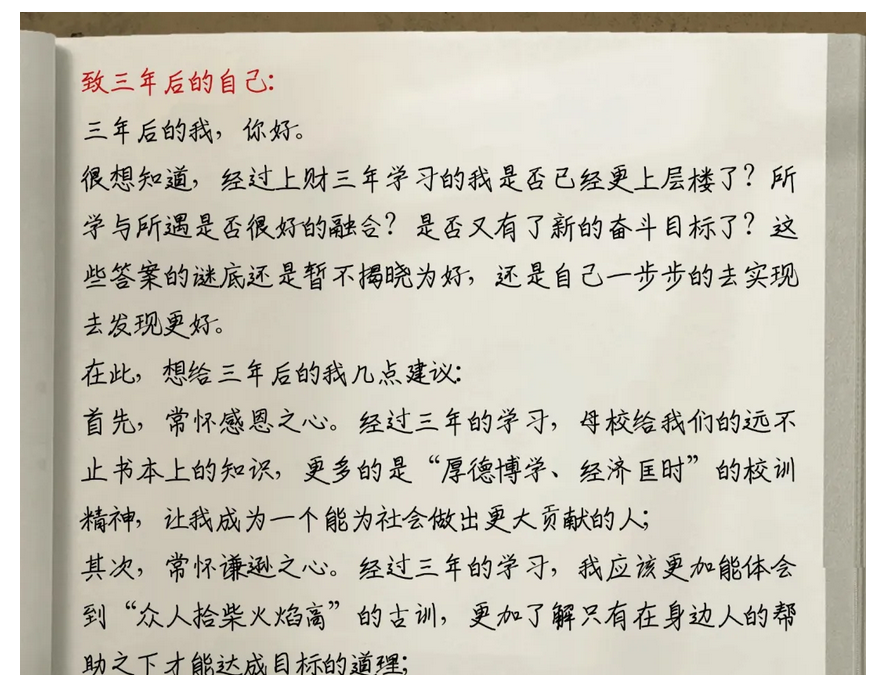 致三年后的自己：
三年后的我，你好。
很想知道，经过上财三年学习的我是否已经更上层楼了？所
学与所遇是否很好的融合？是否又有了新的奋斗目标了？这
些答案的谜底还是暂不揭晓为好，还是自己一步步的去实现
去发现更好。
在此，想给三年后的我几点建议：
首先，常怀感恩之心。经过三年的学习，母校给我们的远不
止书本上的知识，更多的是“厚德博学、经济匡时”的校训
精神，让我成为一个能为社会做出更大贡献的人；
其次，常怀谦逊之心。经过三年的学习，我应该更加能体会
到“众人拾柴火焰高”的古训，更加了解只有在身边人的帮
助之下才能达成目标的道理；